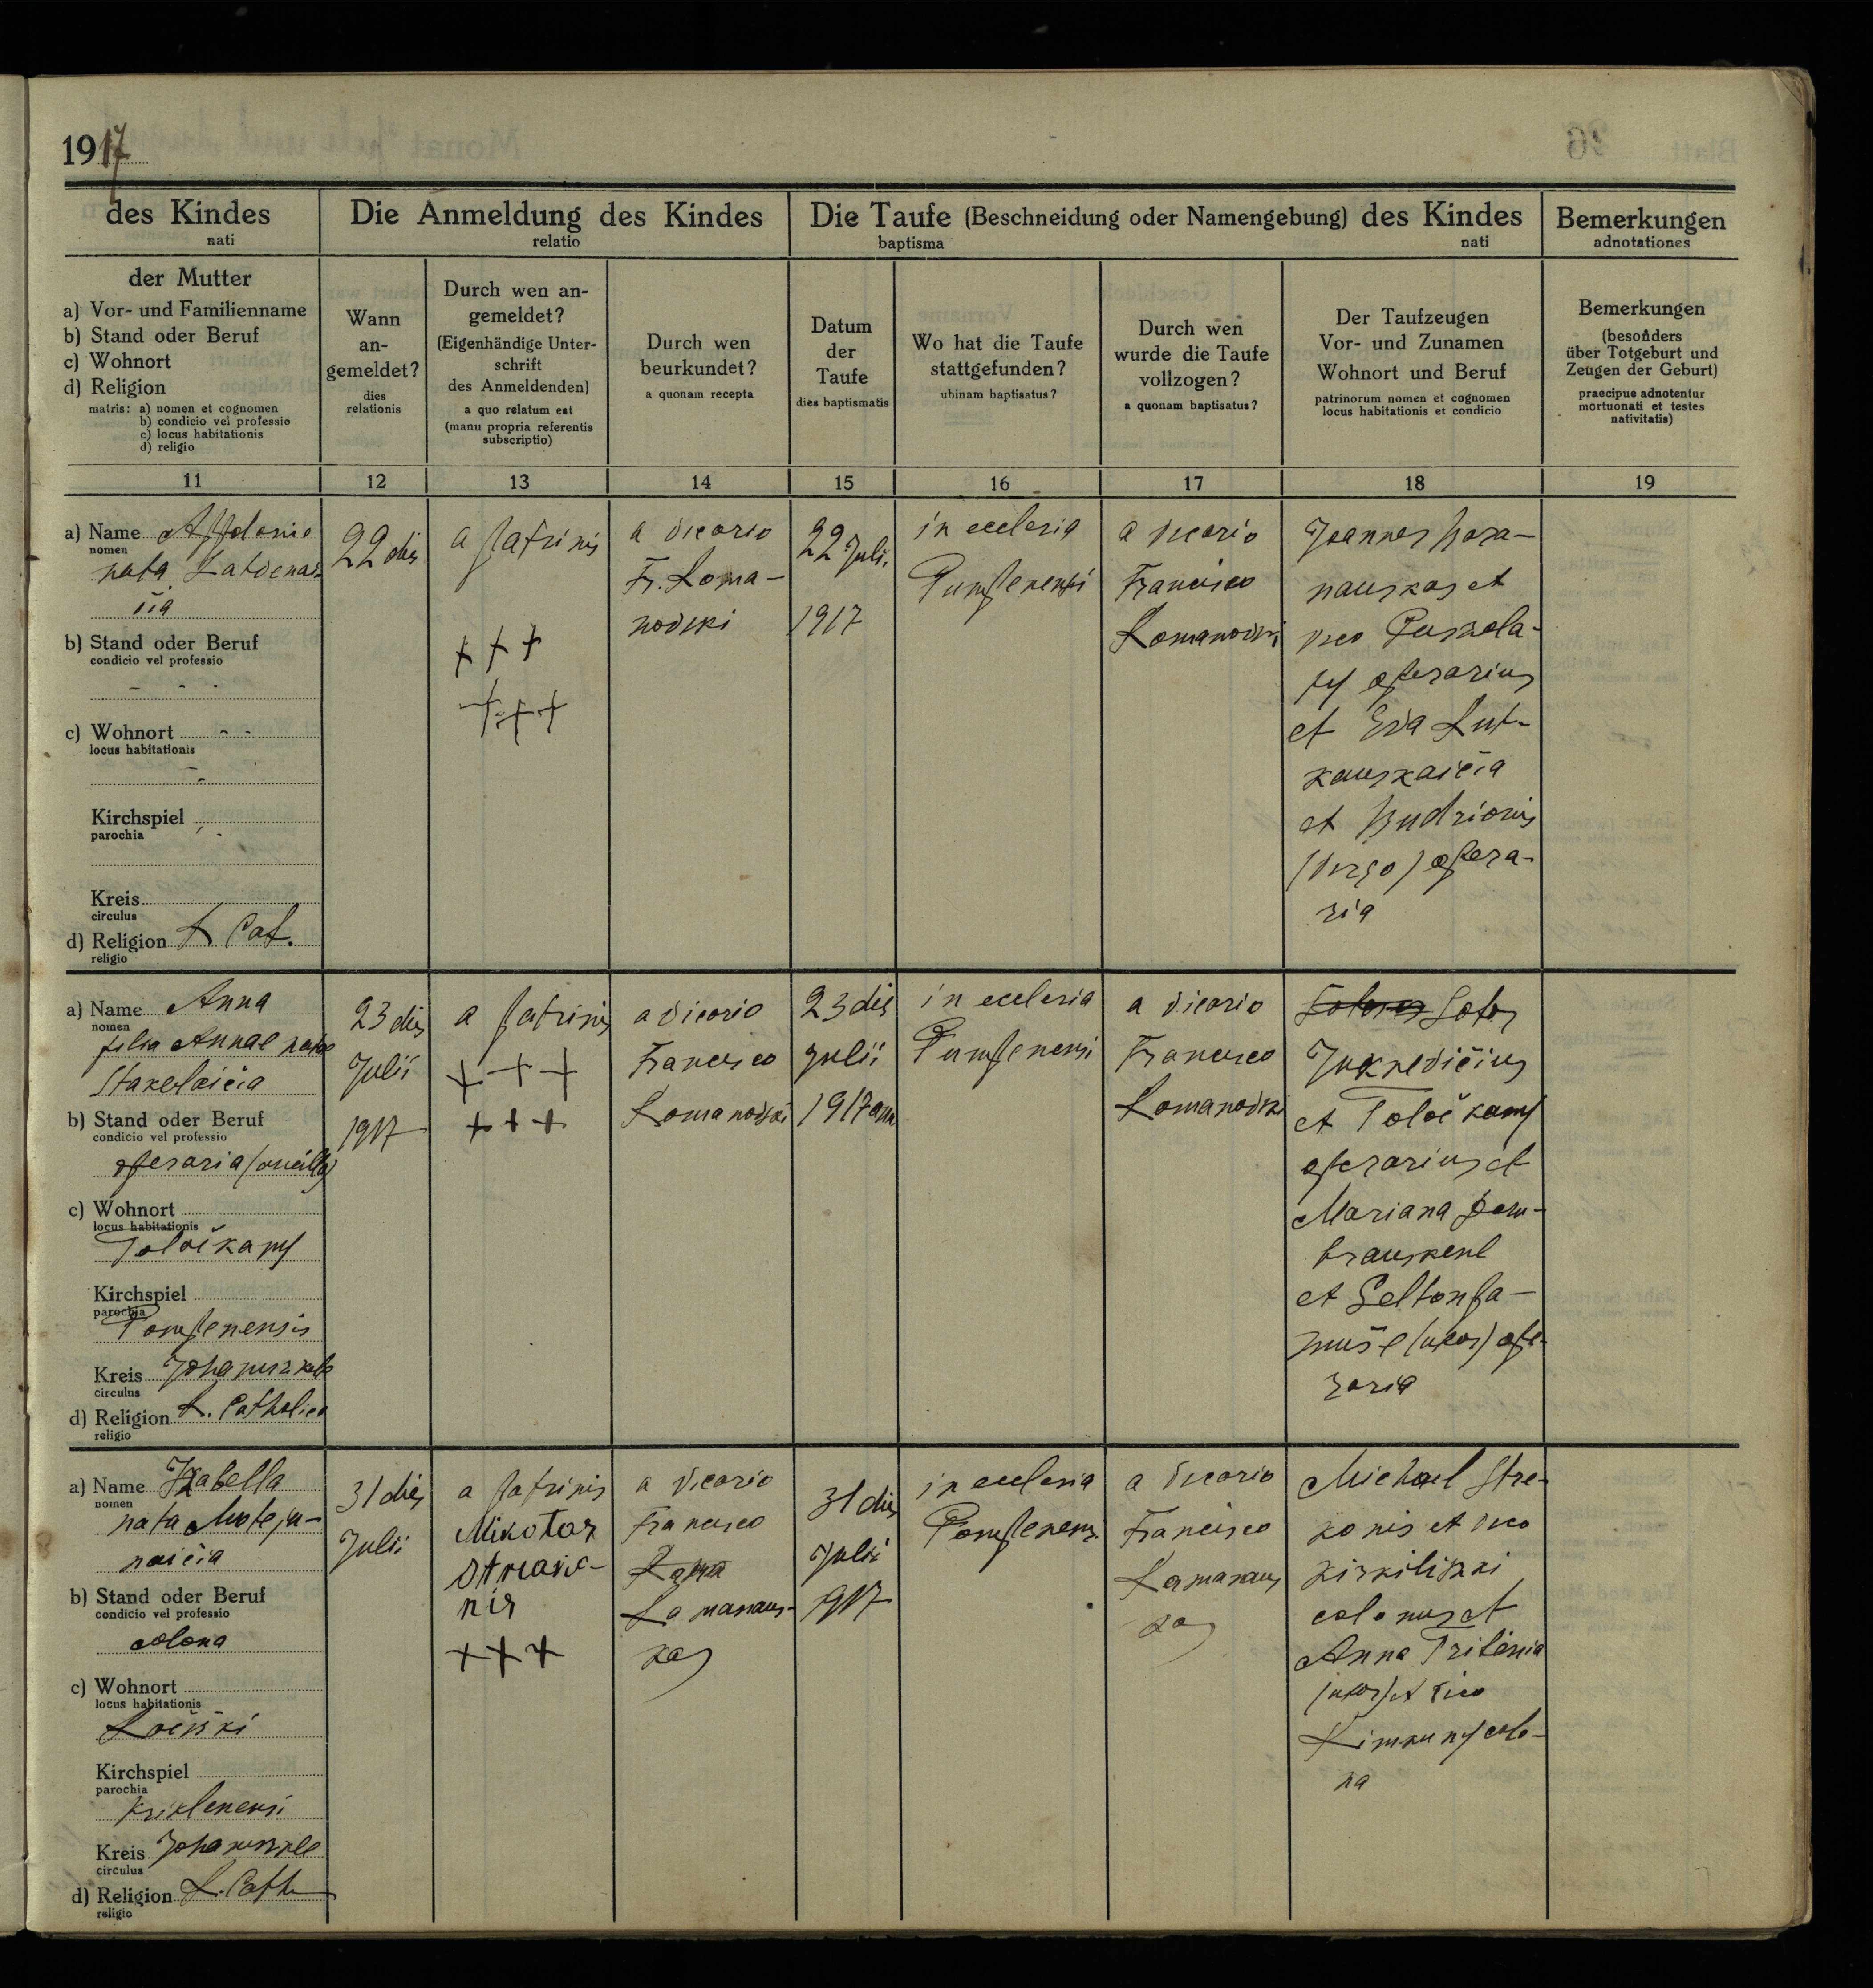 1917
des Kindes
nati
Die Anmeldung des Kindes
relatio
Die Taufe (Beschneidung oder Namengebung) des Kindes
baptisma nati
Bemerkungen
adnotationes
der Mutter
a) Vor- und Familienname
b) Stand oder Beruf
c) Wohnort
d) Religion
matris: a) nomen et cognomen
b) condicio vel professio
c) locus habitationis
d) religio
Wann
an-
gemeldet?
dies
relationis
Durch wen an-
gemeldet?
(Eigenhändige Unter-
schrift
des Anmeldenden)
a quo relatum est
(manu propria referentis
subscriptio)
Durch wen
beurkundet?
a quonam recepta
Datum
der
Taufe
dies baptismatis
Wo hat die Taufe
stattgefunden?
ubinam baptisatus?
Durch wen
wurde die Taufe
vollzogen?
a quonam baptisatus?
Der Taufzeugen
Vor- und Zunamen
Wohnort und Beruf
patrinorum nomen et cognomen
locus habitationis et condicio
Bemerkungen
(besonders
über Totgeburt und
Zeugen der Geburt)
praecipue adnotentur
mortuonati et testes
nativitatis)
11 12 13 14 15 16 17 18 19
a) Name
nomen
nata
b) Stand oder Beruf
condicio vel professio
c) Wohnort
locus habitationis
Kirchspiel
parochia
Kreis
circulus
d) Religion R Cat.
religio
22 die
a patrinis
+ + +
+ + +
a vicario
Fr. Roma-
novski
22 Juli
1917
in ecclesia
Pumpenensi
a vicario
Francisco
Romanovski
Joannes
et
vico
operarius
et Eva Rut-
kauskaičia
et Budrionis
(virgo) opera-
ria
a) Name Anna
nomen
filia Annae natae
Stakelaičia
b) Stand oder Beruf
condicio vel professio
operaria (ancilla)
c) Wohnort
locus habitationis
Toločkany
Kirchspiel
parochia
Pompenensis
Kreis Johaniszkele
circulus
d) Religion R. Catholica
religio
23 dies
Julii
1917
a patrinis
+ + +
+ + +
a vicario
Francisco
Romanovski
23 die
Julii
1917 anni
in ecclesia
Pumpenensi
a vicario
Francisco
Romanovski
et Toločkany
operarius et
Mariana Dom-
brauskene
et Geltonpa-
muše (uxor) ope-
raria
a) Name Izabella
nomen
nata Moteju-
naičia
b) Stand oder Beruf
condicio vel professio
colona
c) Wohnort
locus habitationis
Kirchspiel
parochia
Kriklenensi
Kreis Johaniszkele
circulus
d) Religion R. Cath
religio
31 dies
Julii
a patrinis
+ + +
a vicario
Francisco
Ramanaus-
kas
31 die
Julii
1917
in ecclesia
Pompenensi
a vicario
Francisco
Ramanaus
kas
Michael Stre-
konis et vico
Kirkiliszki
colonus et
Anna
(uxor) et vico
Rimkuny colo-
na